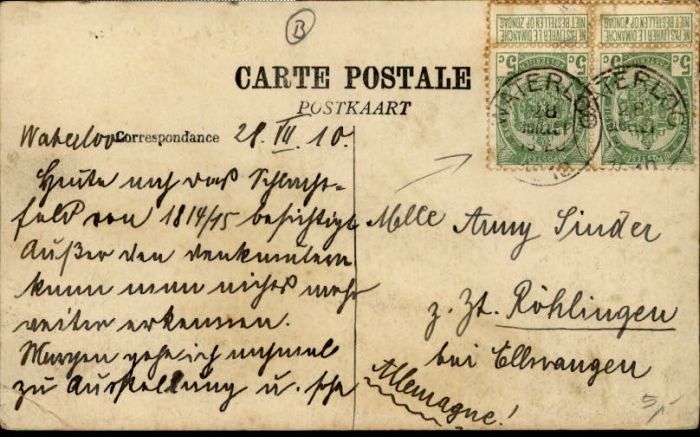 B
NE PAS LIVRER LE DIMANCHE
NIET BESTELLEN OP ZONDAG
NE PAS LIVRER LE DIMANCHE
NIET BESTELLEN OP ZONDAG
5c 5c
5c 5c
WATERLOO
28
JUILLET
WATERLOO
CARTE POSTALE
POSTKAART
Correspondance
Waterloo 28. VII. 10.
Heute noch das Schlacht-
feld von 1814/15 besichtigt.
Außer den Denkmälern
kann man nichts mehr
weiter erkennen.
Morgen gehe ich nochmal
zu Ausstellung u.
Melle Army Sinder
z. Zt. Röhlingen
bei Ellwangen
Allemagne!
5,-